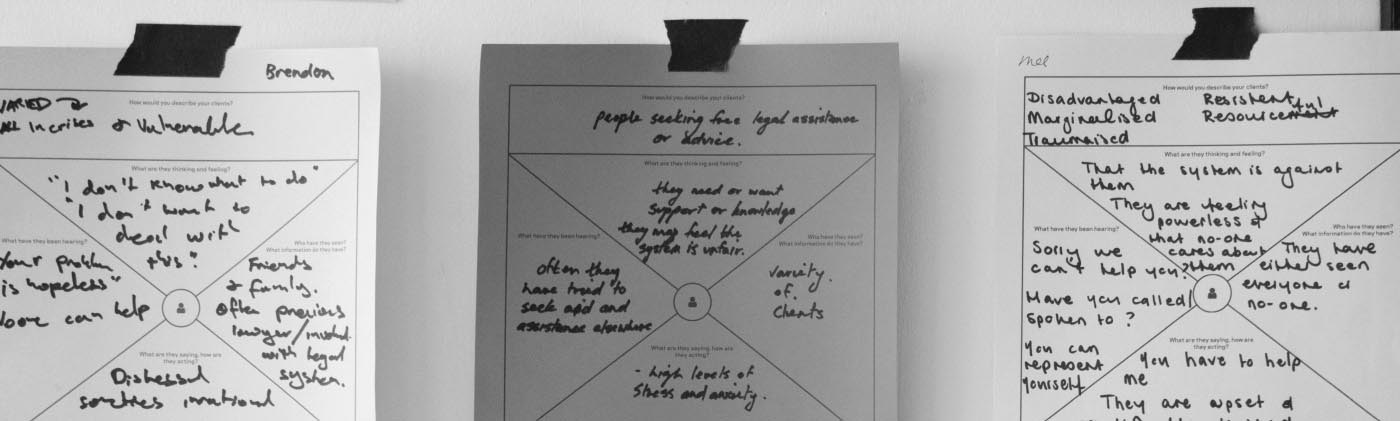 Brendon
How would you describe your clients?
VARIED
& Vulnerable
What are they thinking and feeling?
"I don't know what to do"
"I don't want to
deal with
this"
What have they been hearing?
Your problem
is "hopeless"
can help
Who have they seen?
What information do they have?
Friends
& family.
Often previous
lawyer/
with legal
system.
What are they saying, how are
they acting?
Distressed
irrational
How would you describe your clients?
people seeking free legal assistance
or advice.
What are they thinking and feeling?
they need or want
support or knowledge
they may feel the
system is unfair.
What have they been hearing?
often they
have tried to
seek aid and
assistance elsewhere
Who have they seen?
What information do they have?
variety
of
clients
What are they saying, how are
they acting?
- high levels of
stress and anxiety.
mel
How would you describe your clients?
Disadvantaged
Marginalised
Traumatised
Resistent
Resourceful
What are they thinking and feeling?
That the system is against
them
They are feeling
powerless &
that no-one
cares about
them
What have they been hearing?
Sorry we
can't help you?
Have you called/
spoken to?
You can
represent
yourself
Who have they seen?
What information do they have?
They have
either seen
everyone or
no-one.
What are they saying, how are
they acting?
You have to help
me
They are upset &